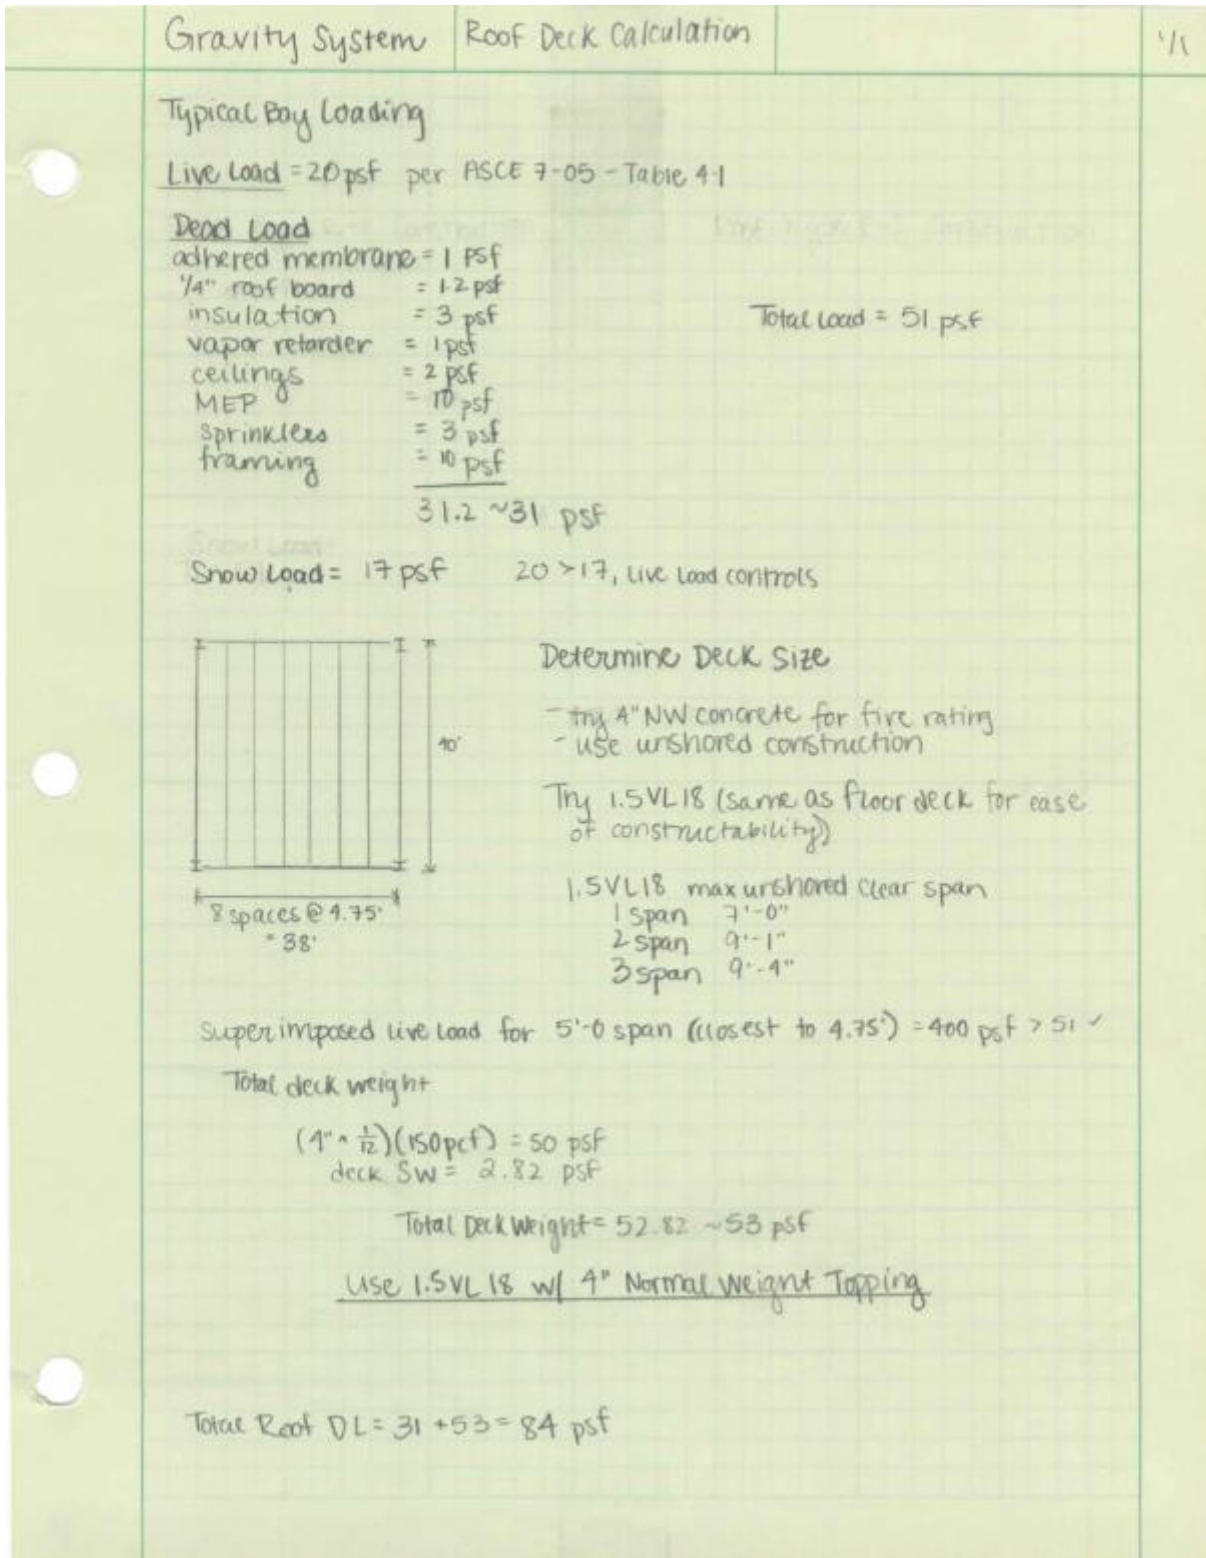 Gravity System
Roof Deck Calculation
1/1
Typical Bay Loading
Live Load = 20 psf per ASCE 7-05 - Table 4-1
Dead Load
adhered membrane = 1 psf
1/4" roof board = 1.2 psf
insulation = 3 psf
Total Load = 51 psf
vapor retarder = 1 psf
ceilings = 2 psf
MEP = 10 psf
sprinklers = 3 psf
framing = 10 psf
31.2 ~31 psf
Snow Load = 17 psf 20 > 17, live load controls
Determine Deck Size
- try 4" NW concrete for fire rating
- use unshored construction
40'
Try 1.5VL18 (same as floor deck for ease
of constructability)
1.5VL18 max unshored clear span
8 spaces @ 4.75'
= 38'
1 span 7'-0"
2 span 9'-1"
3 span 9'-4"
Superimposed live load for 5'-0 span (closest to 4.75') = 400 psf > 51 ✓
Total deck weight
(4" × 1/12)(150pcf) = 50 psf
deck SW = 2.82 psf
Total Deck Weight = 52.82 ~53 psf
Use 1.5VL18 w/ 4" Normal Weight Topping
Total Roof DL = 31 + 53 = 84 psf